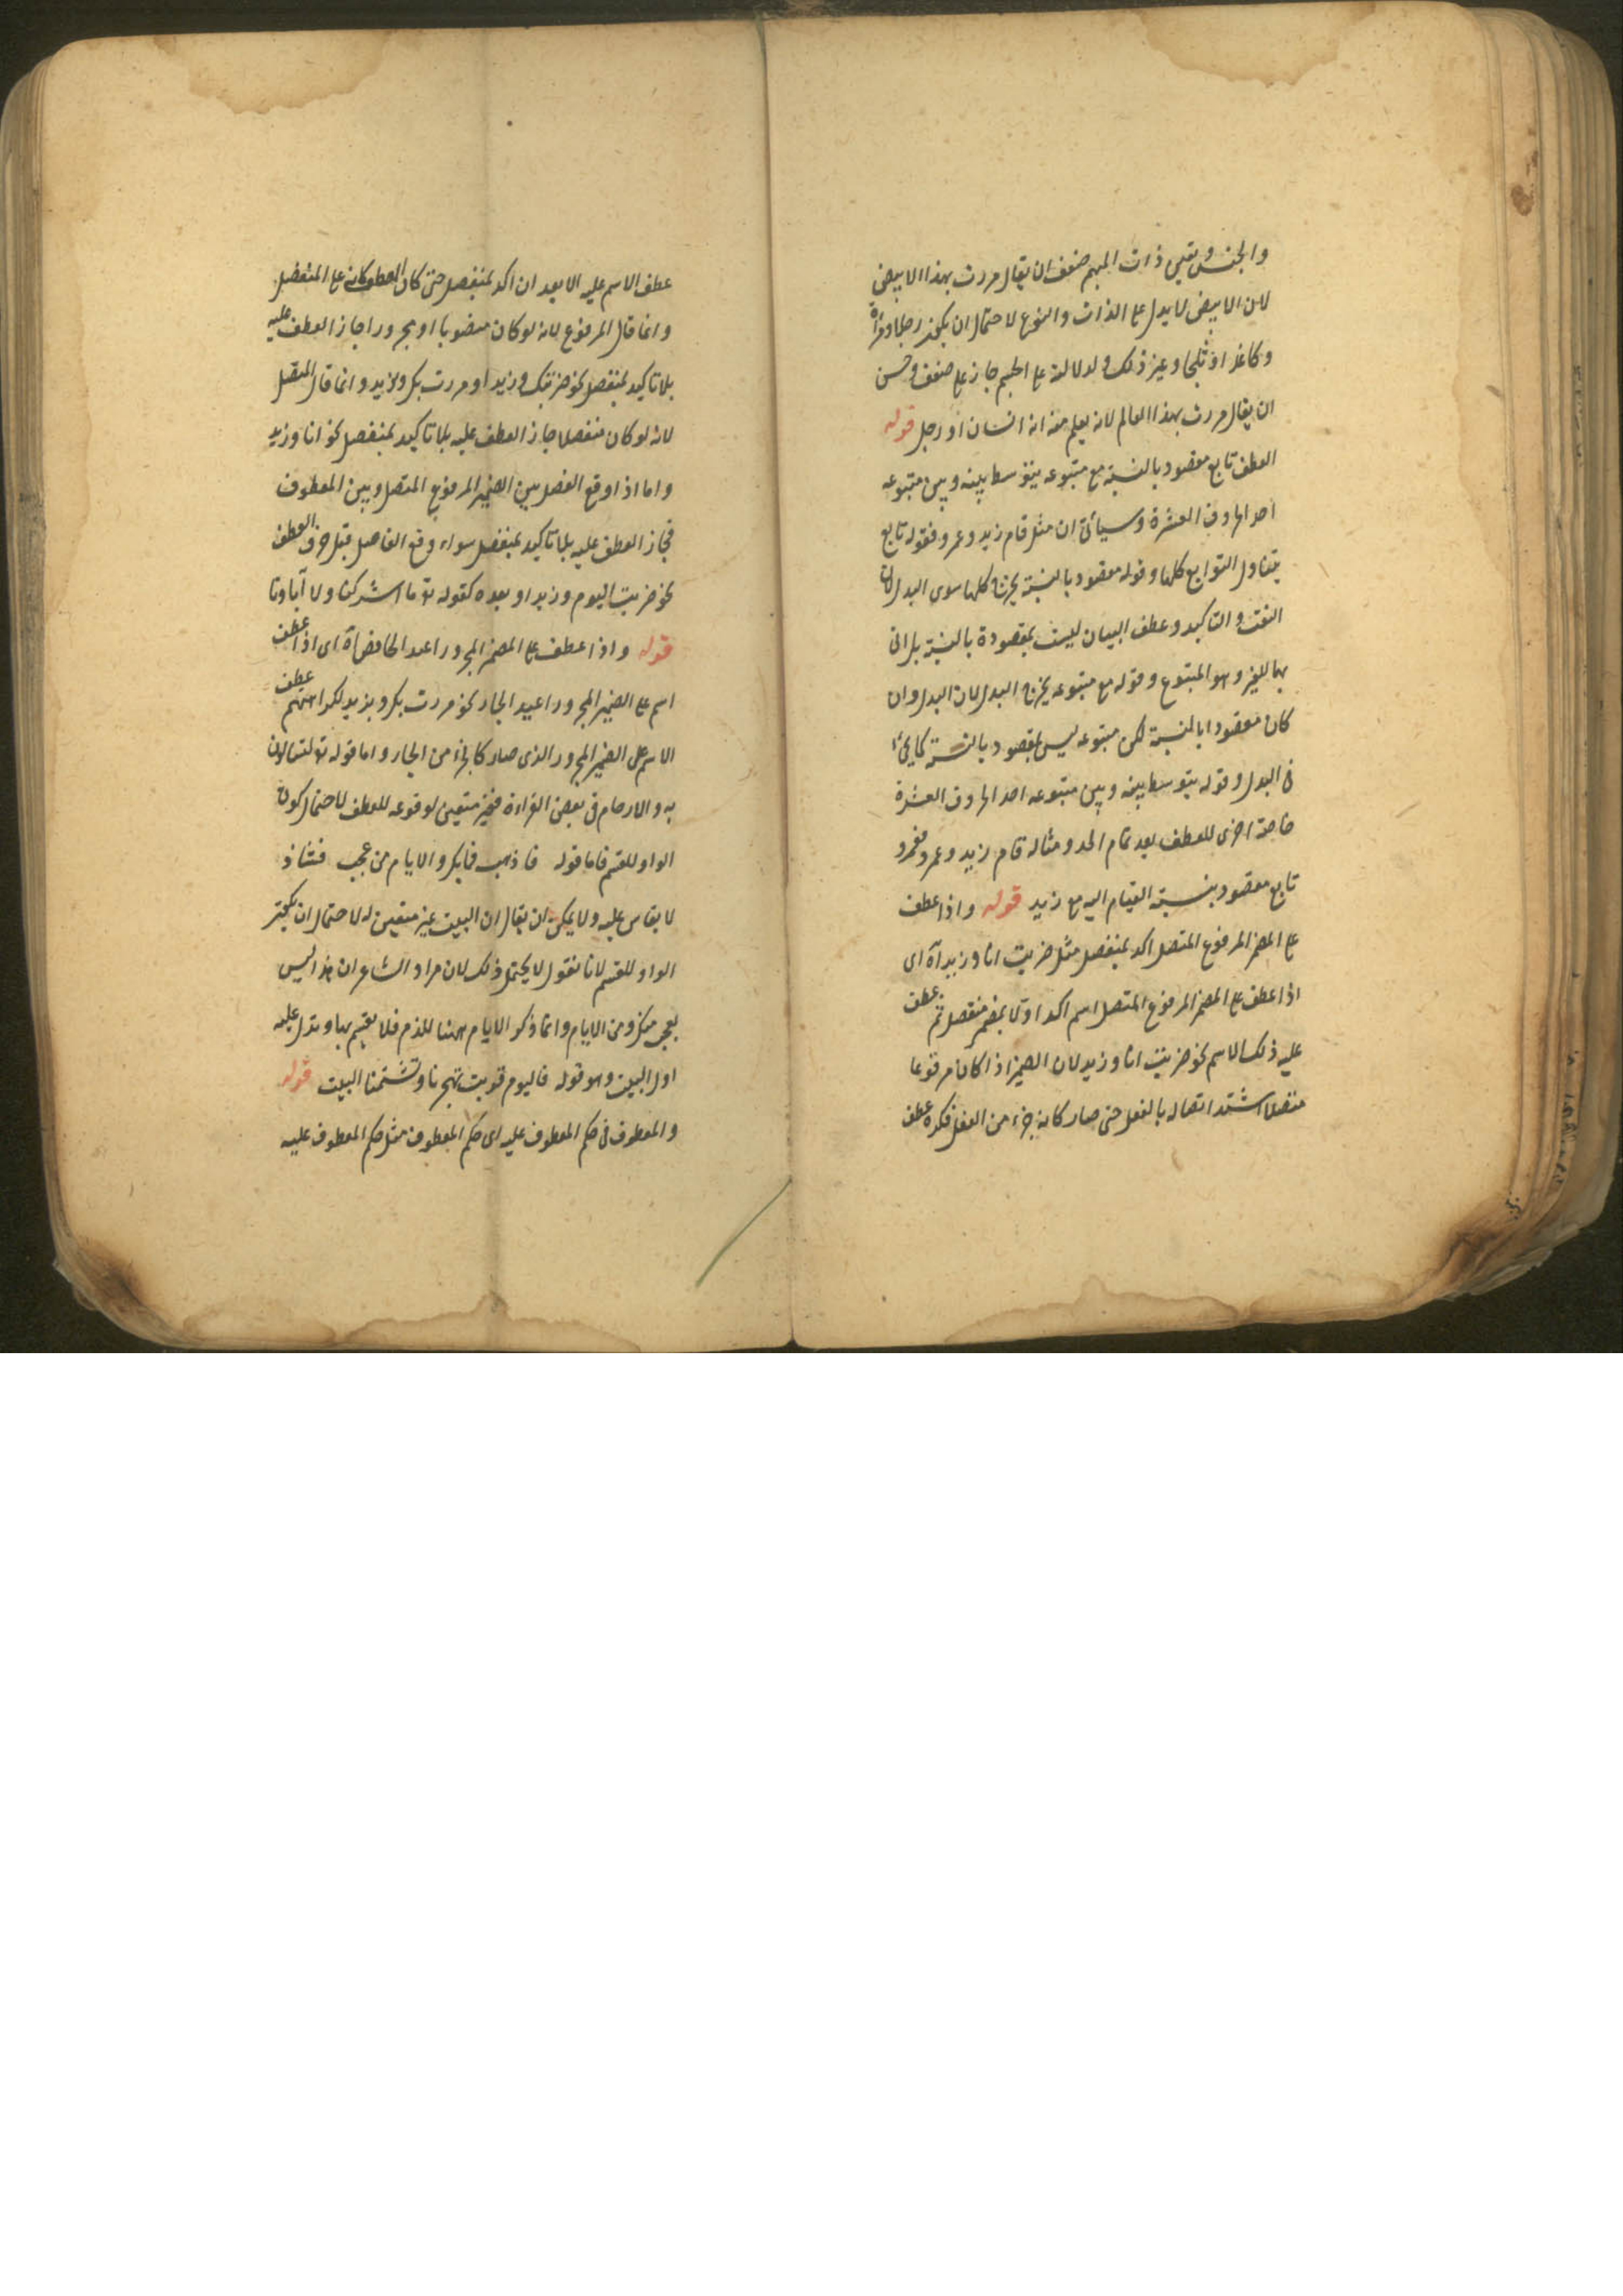 والجنس وتعيين ذات المبهم ضعف ان يقال مررت بهذا الابيض
لان الابيض لا يدل على الذات والنوع لاحتمال ان يكون رجلا وفرسا
وكاغذا او ثلجا وغير ذلك ولدلالته على الجسم جاز على ضعف وحسن
ان يقال مررت بهذا العالم لانه يعلم منه انه انسان او رجل قوله
العطف تابع مقصود بالنسبة مع متبوعه يتوسط بينه وبين متبوعه
احد الحروف العشرة وسيأتى ان مثل قام زيد وعمرو فقوله تابع
يتناول التوابع كلها وقوله مقصود بالنسبة يخرج كلها سوى البدل لان
النعت والتاكيد وعطف البيان ليست بمقصودة بالنسبة بل اتى
بها للغير وهو المتبوع وقوله مع متبوعه يخرج البدل لان البدل وان
كان مقصودا بالنسبة لكن متبوعه ليس بمقصود بالنسبة كما يجئ
فى البدل وقوله يتوسط بينه وبين متبوعه احد الحروف العشرة
خاصة اخرى للعطف بعد تمام الحد ومثاله قام زيد وعمرو فعمرو
تابع مقصود بنسبة القيام اليه مع زيد قوله واذا عطف
على المضمر المرفوع المتصل اكد بمنفصل مثل ضربت انا وزيد آه اى
اذا عطف على المضمر المرفوع المتصل اسم اكد اولا بمضمر منفصل ثم عطف
عليه ذلك الاسم نحو ضربت انا وزيد لان الضمير اذا كان مرفوعا
متصلا اشتد اتصاله بالفعل حتى صار كانه جزء من الفعل فكره عطف
عطف الاسم عليه الا بعد ان اكد بمنفصل حتى كان العطف كانه على المنفصل
وانما قال المرفوع لانه لو كان منصوبا او مجرورا جاز العطف عليه
بلا تاكيد بمنفصل نحو ضربتك وزيدا ومررت بك وبزيد وانما قال المتصل
لانه لو كان منفصلا جاز العطف عليه بلا تاكيد بمنفصل نحو انا وزيد
واما اذا وقع الفصل بين الضمير المرفوع المتصل وبين المعطوف
فجاز العطف عليه بلا تاكيد بمنفصل سواء وقع الفاصل قبل حرف العطف
نحو ضربت اليوم وزيد او بعده كقوله تع ما اشركنا ولا آباونا
قوله واذا عطف على المضمر المجرور اعيد الخافض آه اى اذا عطف
اسم على الضمير المجرور اعيد الجار نحو مررت بك وبزيد لكراهتهم عطف
الاسم على الضمير المجرور الذى صار كالجزء من الجار واما قوله تع تسالون
به والارحام فى بعض القراءة فغير متعين لوقوعه للعطف لاحتمال كون
الواو للقسم فاما قوله فاذهب فما بك والايام من عجب فشاذ
لا يقاس عليه ولا يمكن ان يقال ان البيت غير متعين له لاحتمال ان يكون
الواو للقسم لانا نقول لا يحتمل ذلك لان مراد الشاعر ان هذا ليس
بعجب منك ومن الايام وانما ذكر الايام ههنا للذم فلا يقسم بها ويدل عليه
اول البيت وهو قوله فاليوم قربت تهجونا وتشتمنا البيت قوله
والمعطوف فى حكم المعطوف عليه اى حكم المعطوف مثل حكم المعطوف عليه